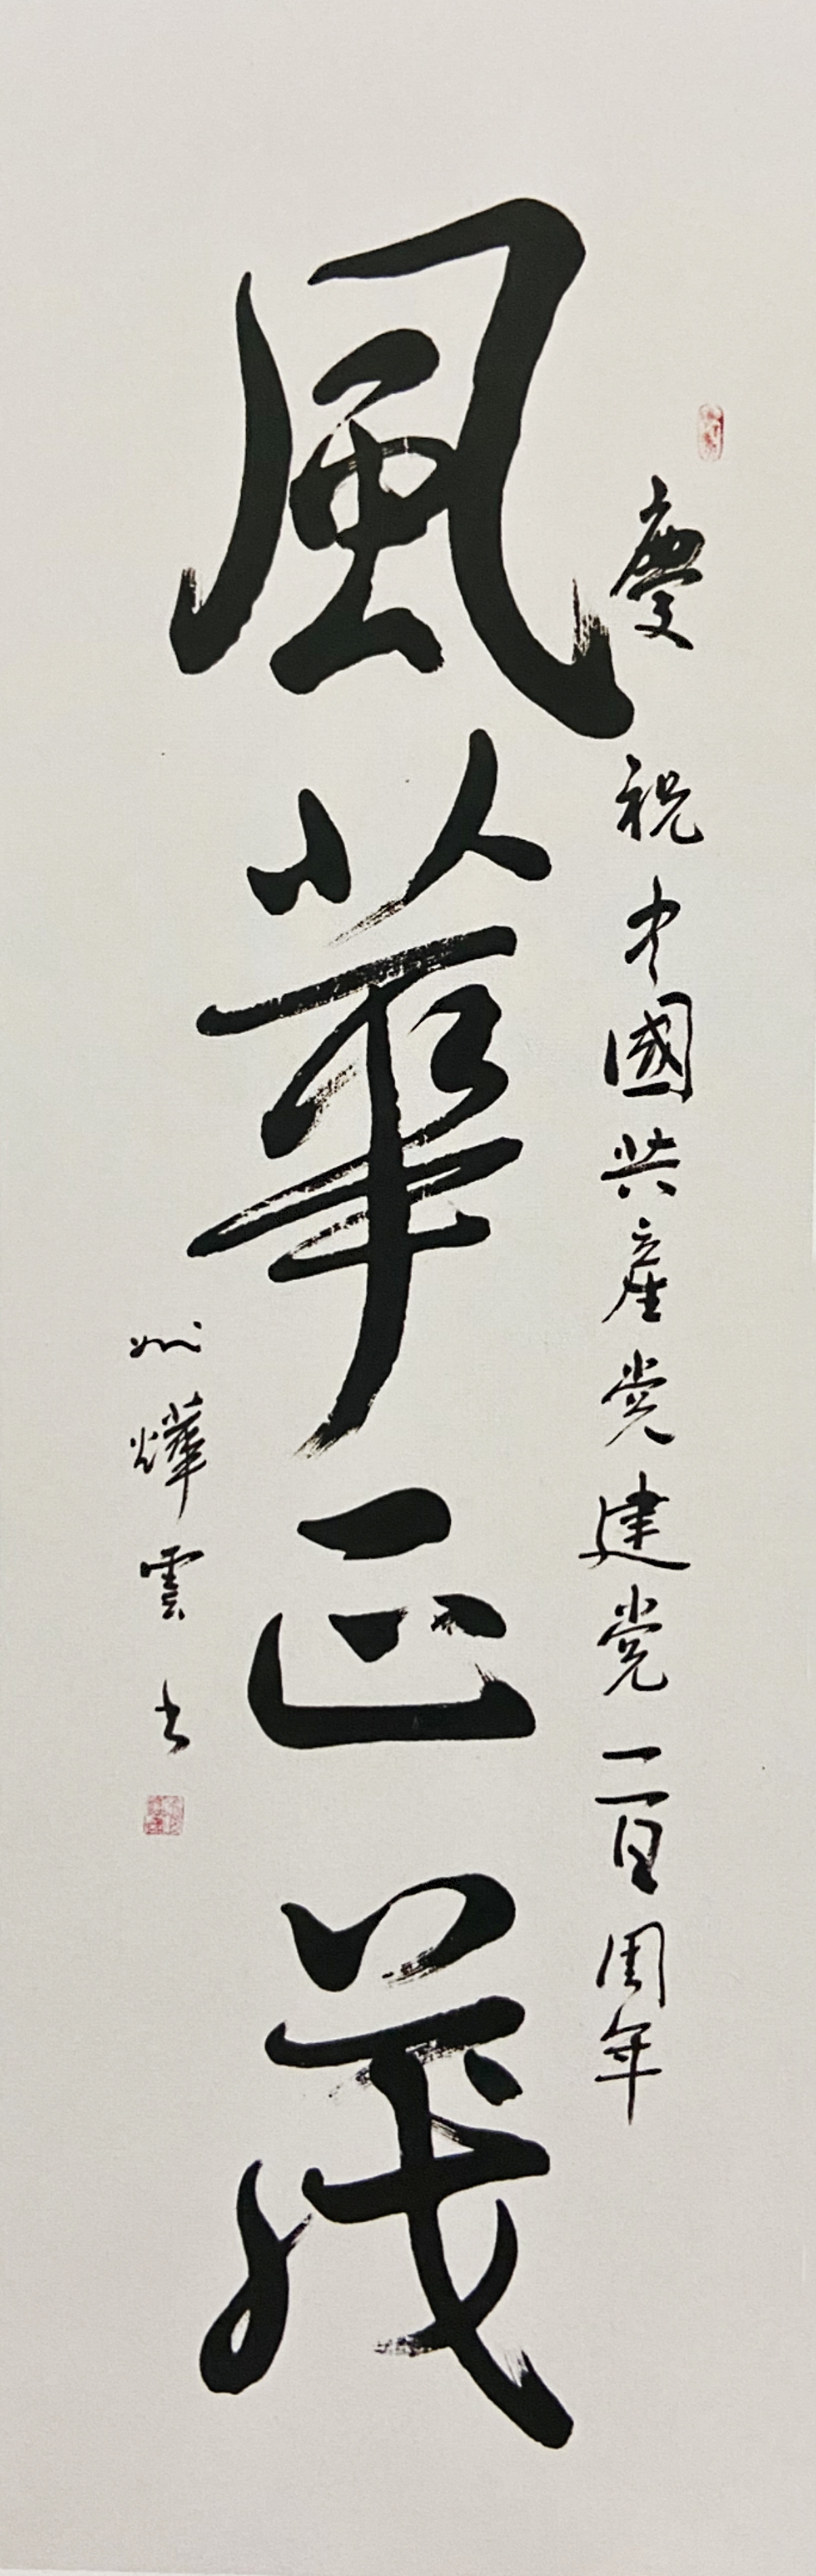 慶祝中國共產党建党一百周年
風華正茂
燁雲书